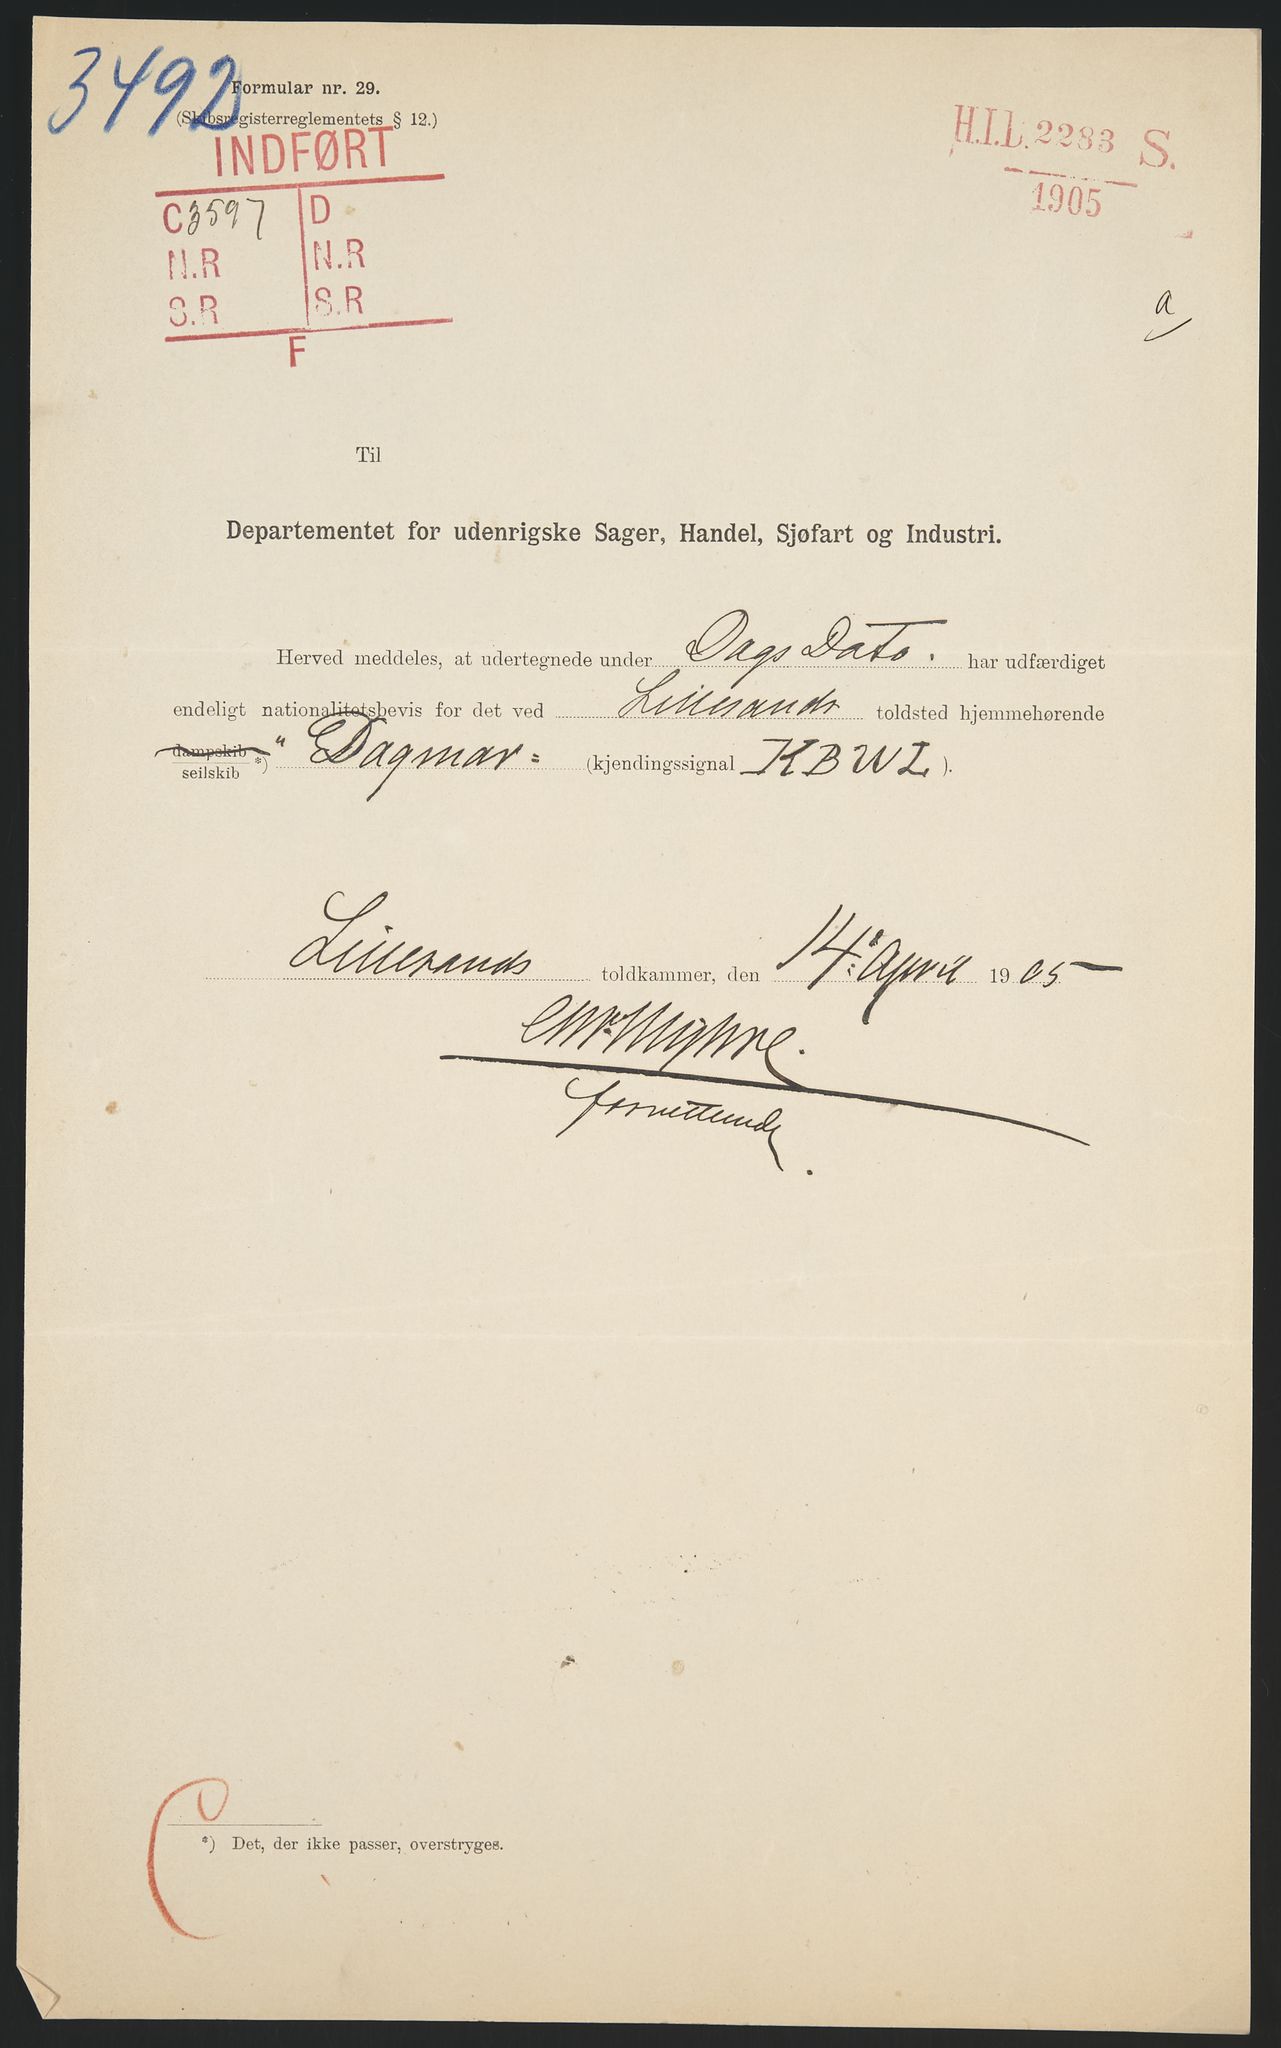 3492
Formular nr. 29.
(Skibsregisterreglementets § 12.)
INDFØRT
C 3597 D
N.R N.R
S.R S.R
F
H.I.D. 2283 S.
1905
a
Til
Departementet for udenrigske Sager, Handel, Sjøfart og Industri.
Herved meddeles, at udertegnede under Dags Dato. har udfærdiget
endeligt nationalitetsbevis for det ved Lillesands toldsted hjemmehørende
dampskib
seilskib *) "Dagmar" (kjendingssignal KBWL).
Lillesands toldkammer, den 14. April 1905
Myhre.
forrettende
*) Det, der ikke passer, overstryges.